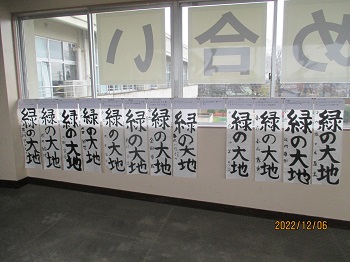 め合い
緑の大地
緑の大地
緑の大地
緑の大地
緑の大地
緑の大地
緑の大地
緑の大地
緑の大地
緑の大地
緑の大地
緑の大地
2022/12/06